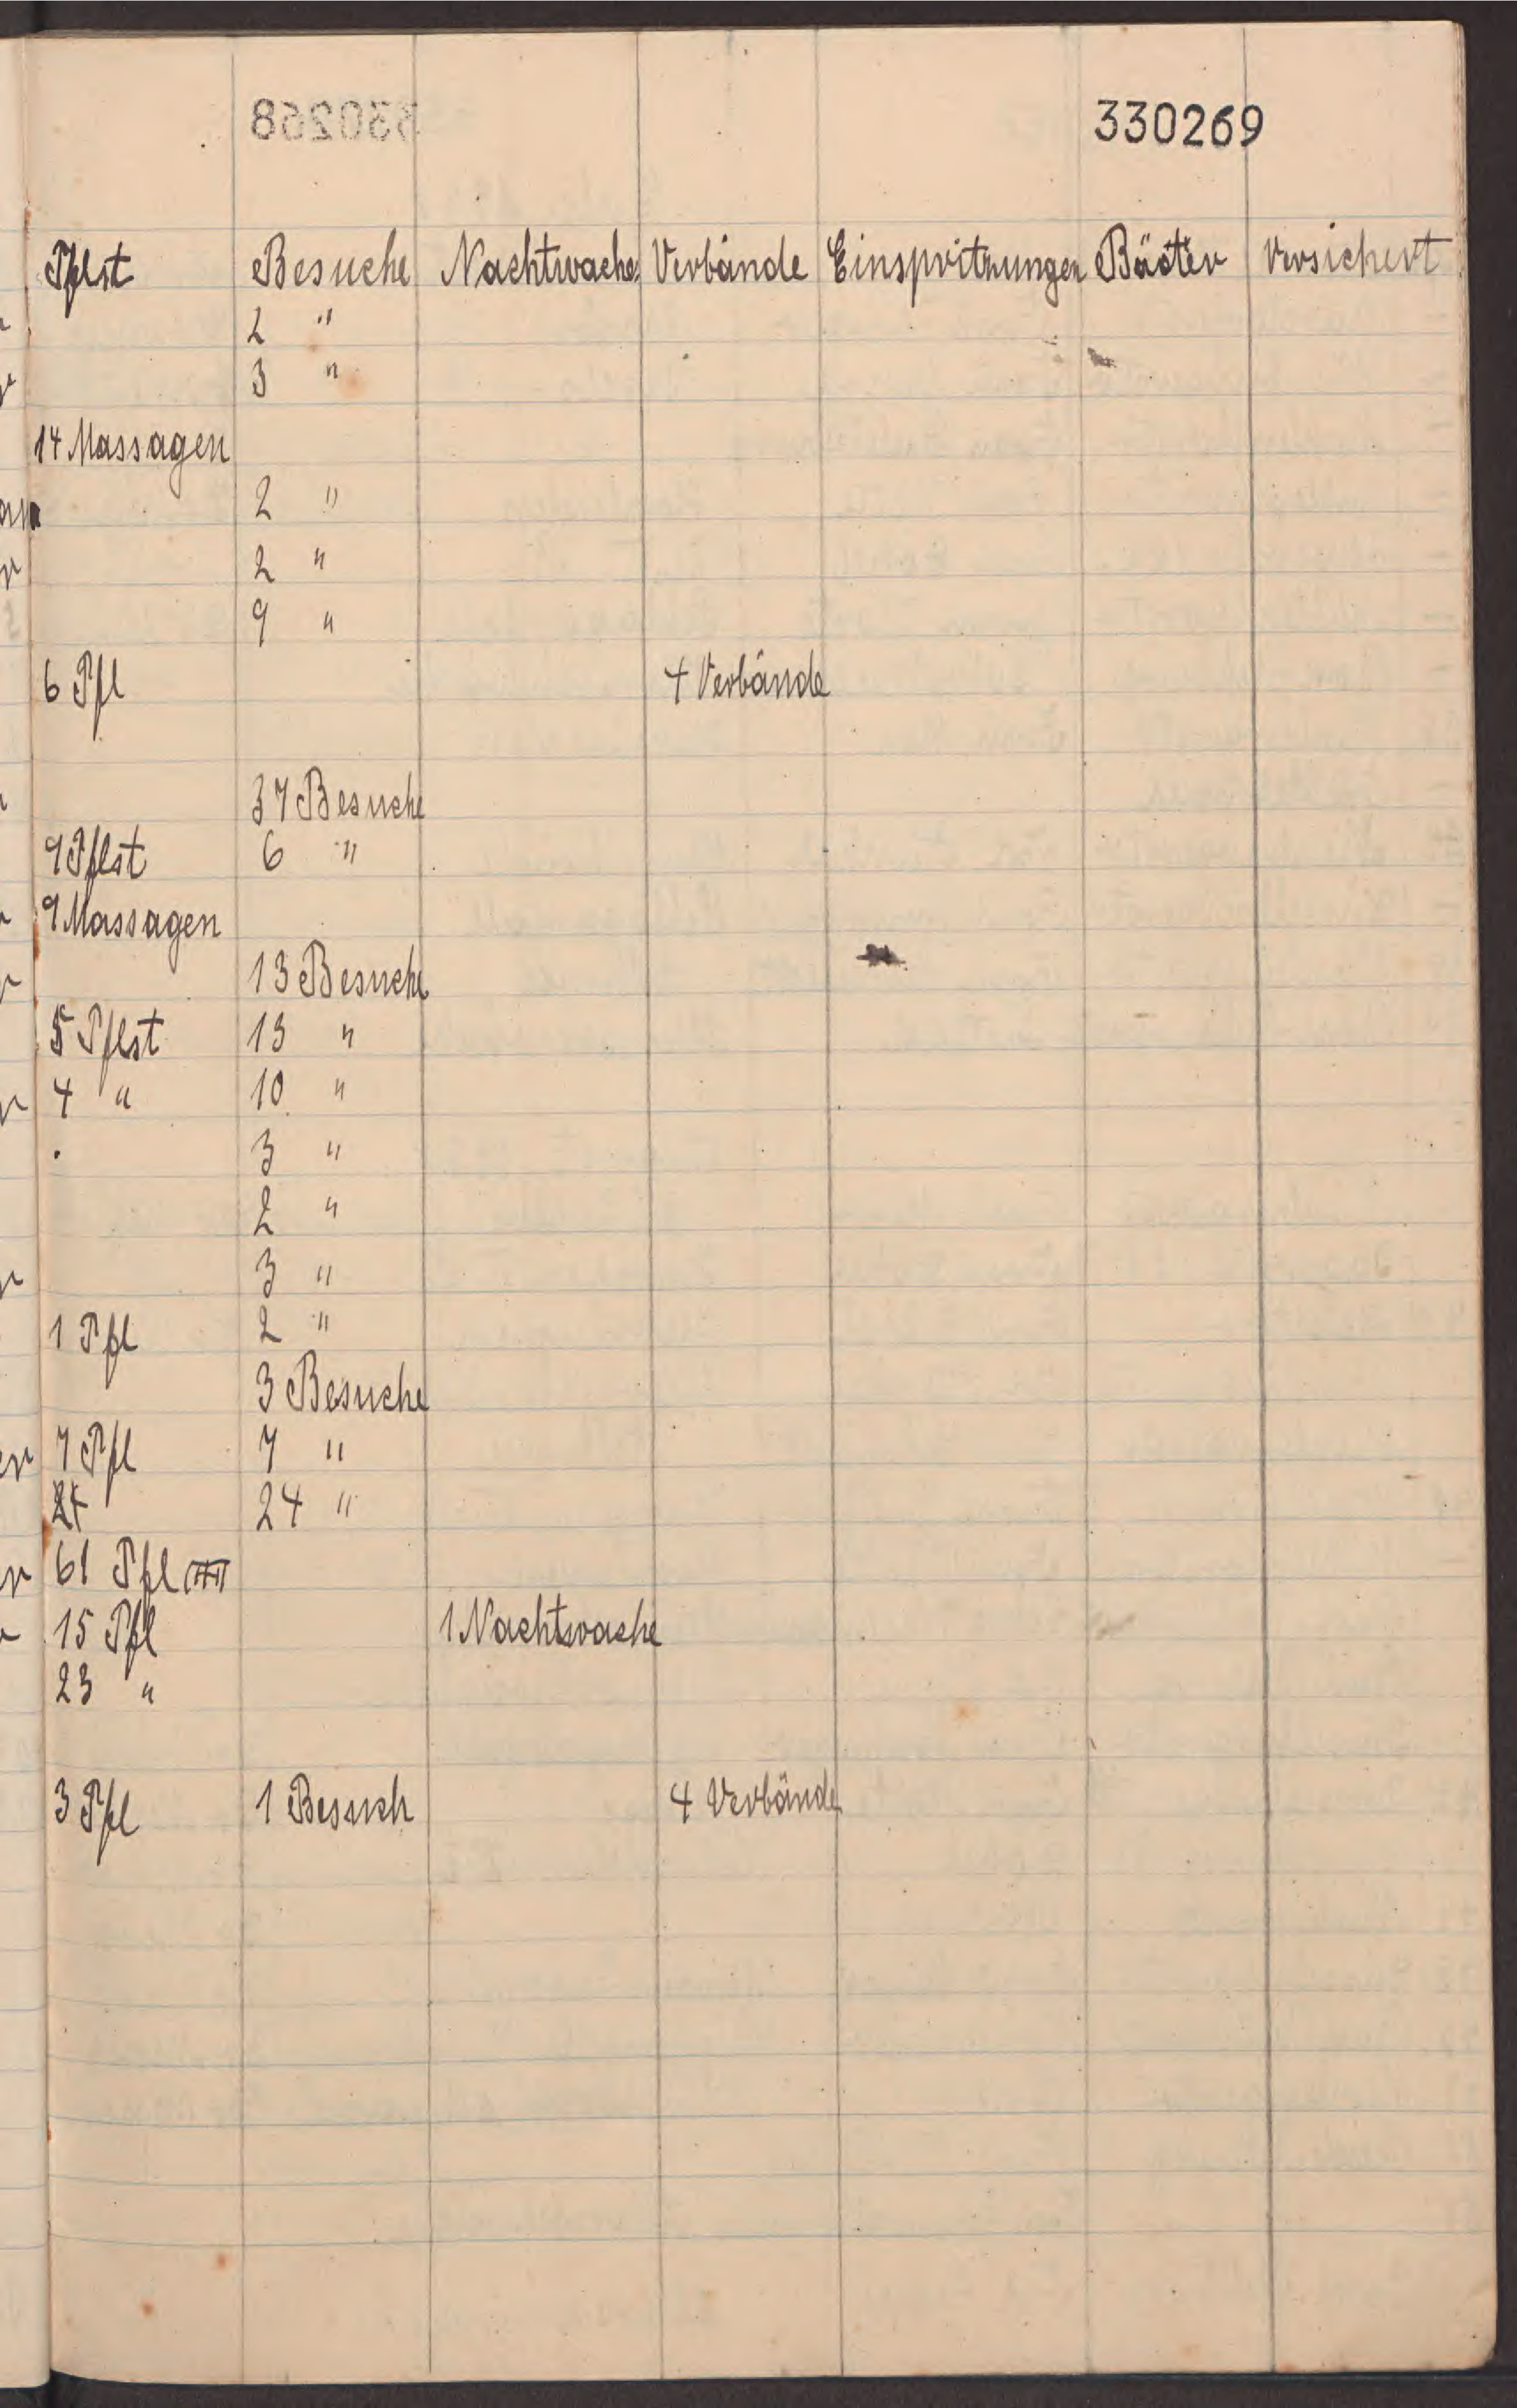 330269
Pflst Besuche Nachtwache Verbände Einspritzungen Bäder Versichert
2 "
3 "
14 Massagen
2 "
2 "
9 "
6 Pfl 4 Verbände
37 Besuche
9 Pflst 6 "
9 Massagen
13 Besuche
5 Pflst 13 "
4 " 10 "
3 "
2 "
3 "
1 Pfl 2 "
3 Besuche
7 Pfl 7 "
24 "
61 Pfl
15 Pfl 1 Nachtwache
23 "
3 Pfl 1 Besuch 4 Verbände